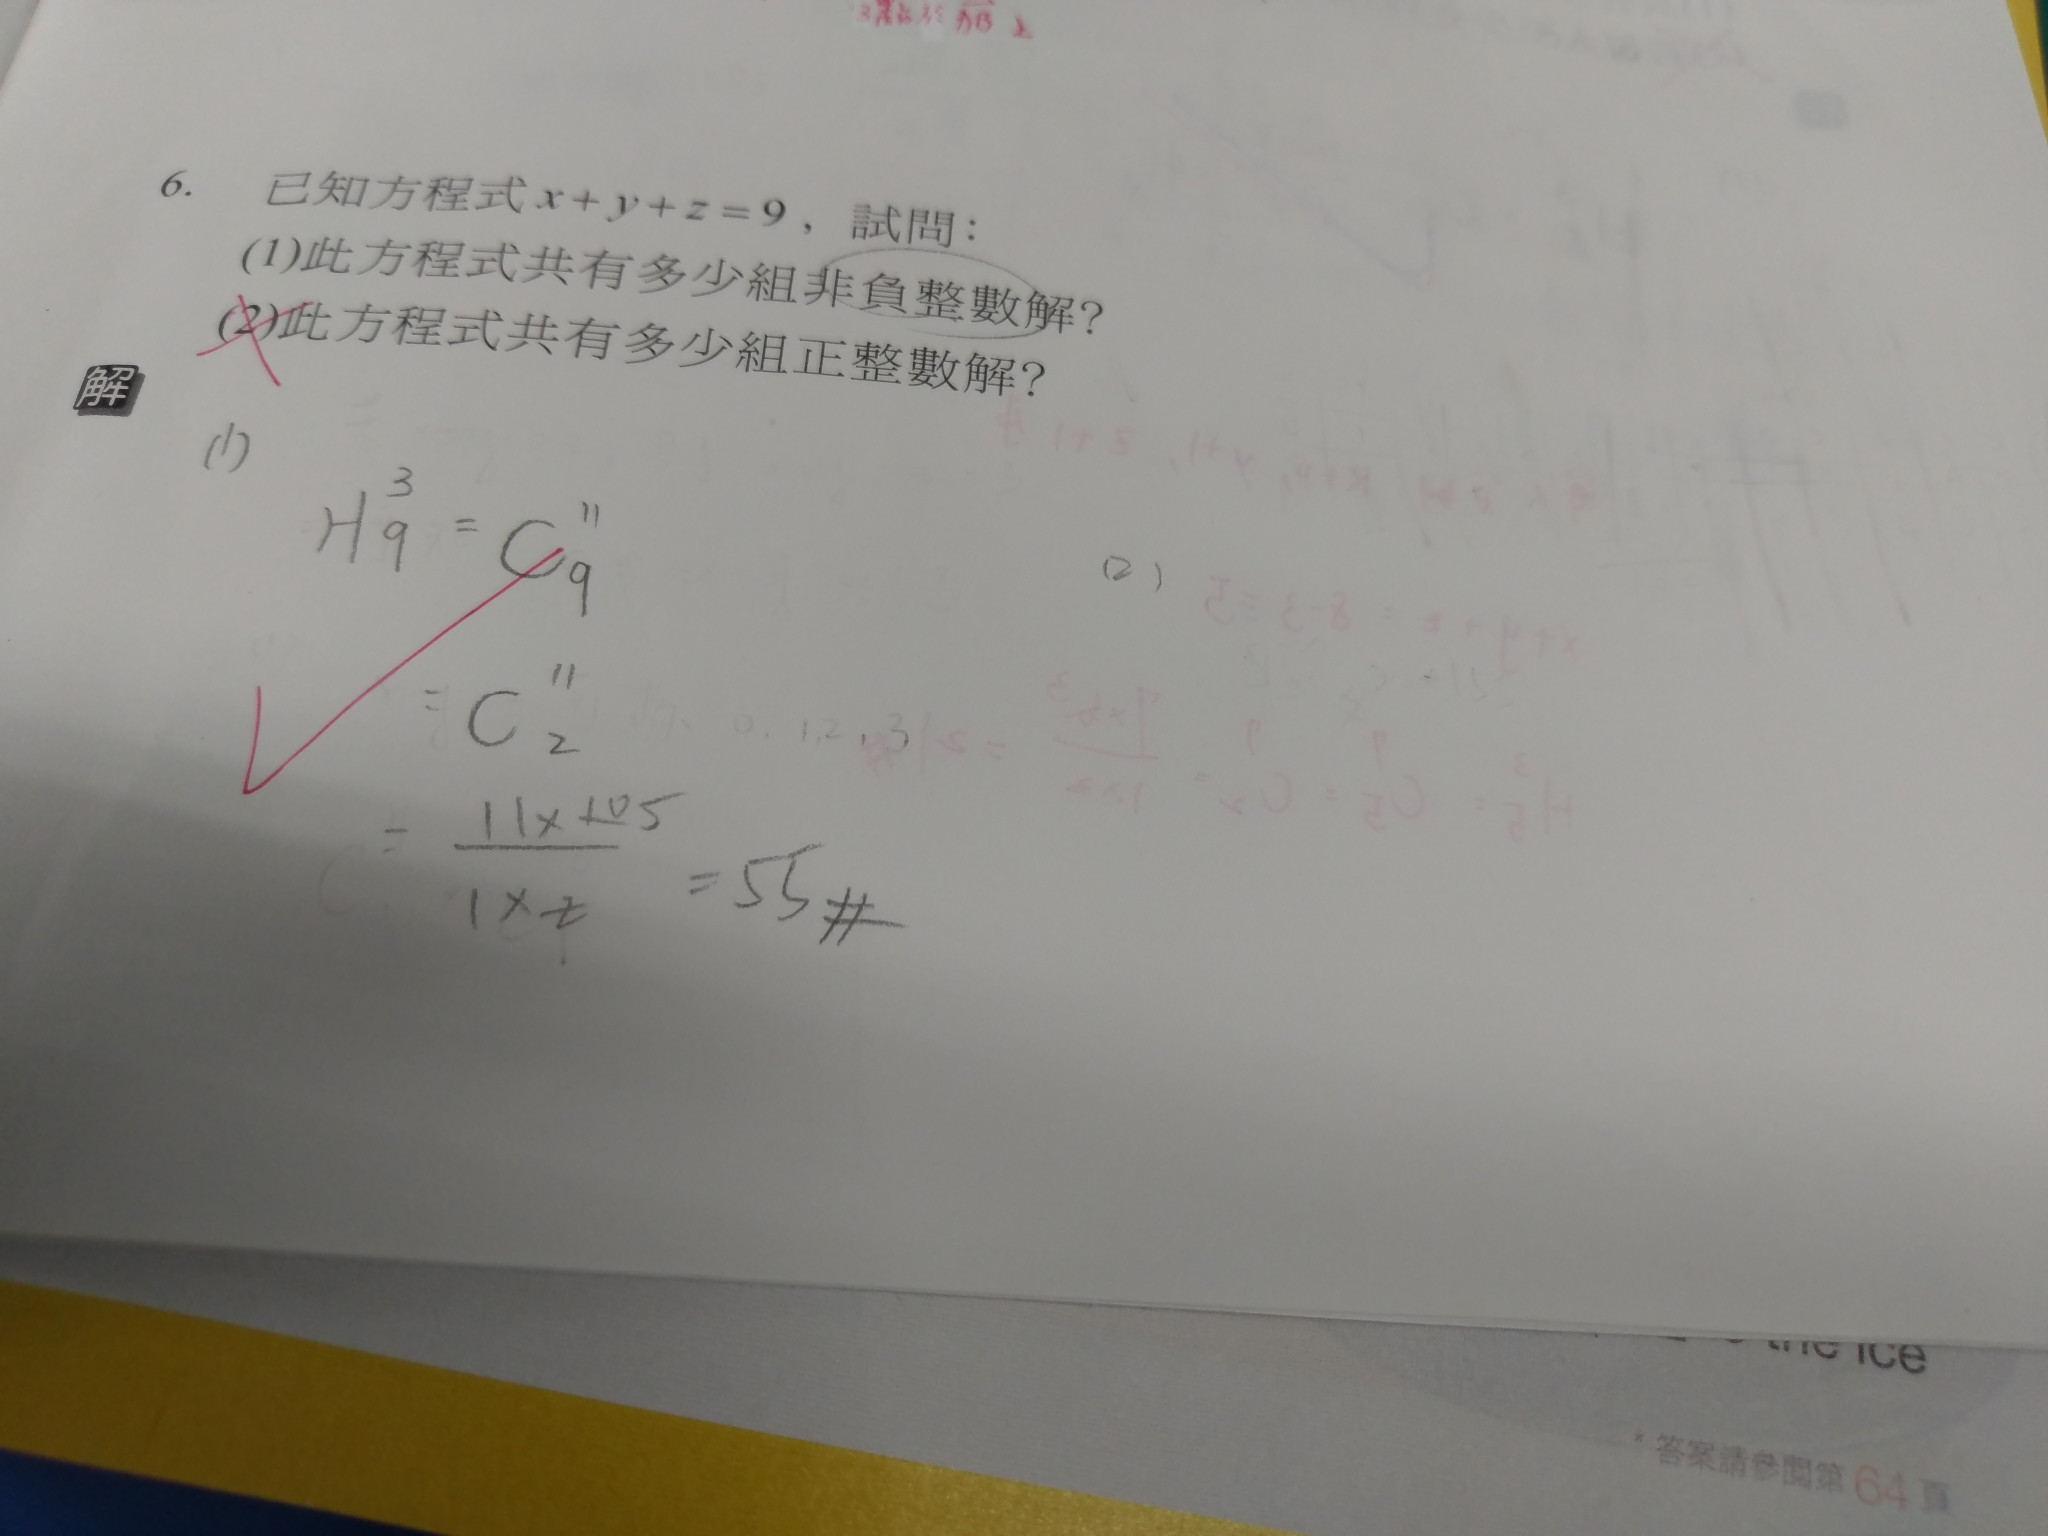 6. 已知方程式 x+y+z=9，試問：
(1)此方程式共有多少組非負整數解?
(2)此方程式共有多少組正整數解?
解
(1)
H³₉ = C¹¹₉
= C¹¹₂
= 11×10 5 / 1×2 = 55 #
(2)
the ice
*答案請參閱第 64 頁